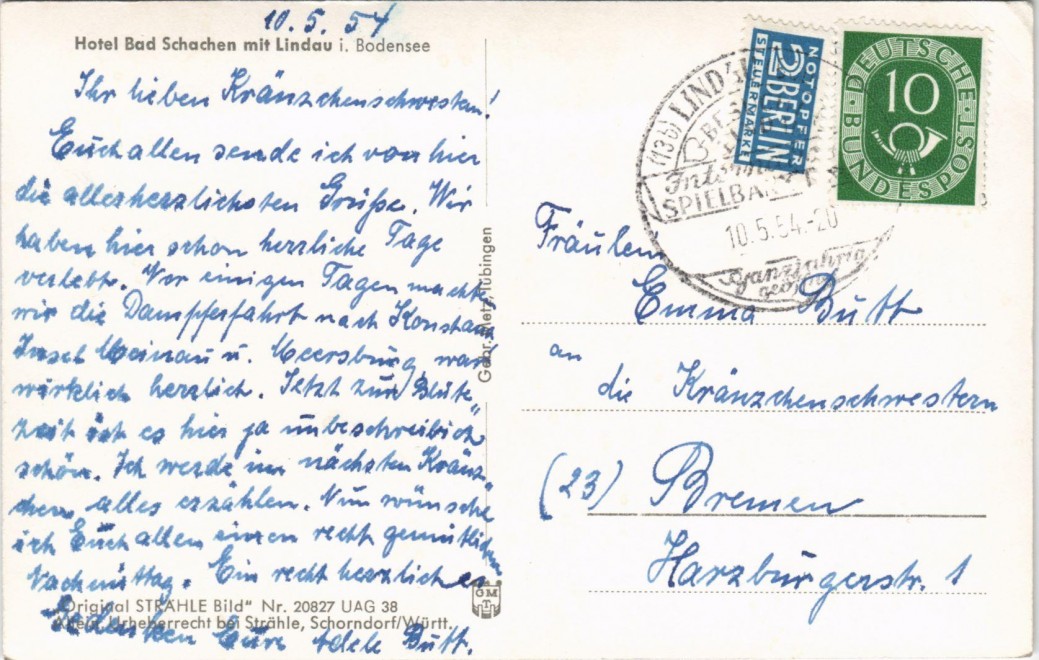 10.5.54
Hotel Bad Schachen mit Lindau i. Bodensee
Ihr lieben Kränzchenschwestern!
Euch allen sende ich von hier
die allerherzlichsten Grüße. Wir
haben hier schon herrliche Tage
verlebt. Vor einigen Tagen machten
wir die Dampferfahrt nach Konstanz
Insel Meinau u. Meersburg, war
wirklich herrlich. Jetzt zur Blüte
zeit ist es hier ja unbeschreiblich
schön. Ich werde im nächsten Kränz-
chen alles erzählen. Nun wünsche
ich Euch allen einen recht gemütlichen
Nachmittag. Ein recht herzliches
Gedenken Eure Adele Butt.
"Original STRÄHLE Bild" Nr. 20827 UAG 38
Allein. Urheberrecht bei Strähle, Schorndorf/Württ.
Gebr. Metz, Tübingen
GMT
NOTOPFER
2 BERLIN
STEUERMARKE
DEUTSCHE
BUNDESPOST
10
(13b) LINDAU
SPIELBANK
10.5.54.-20
Ganzjährig
geöffnet
Fräulein
Emma Butt
an
die Kränzchenschwestern
(23) Bremen
Harzburgerstr. 1